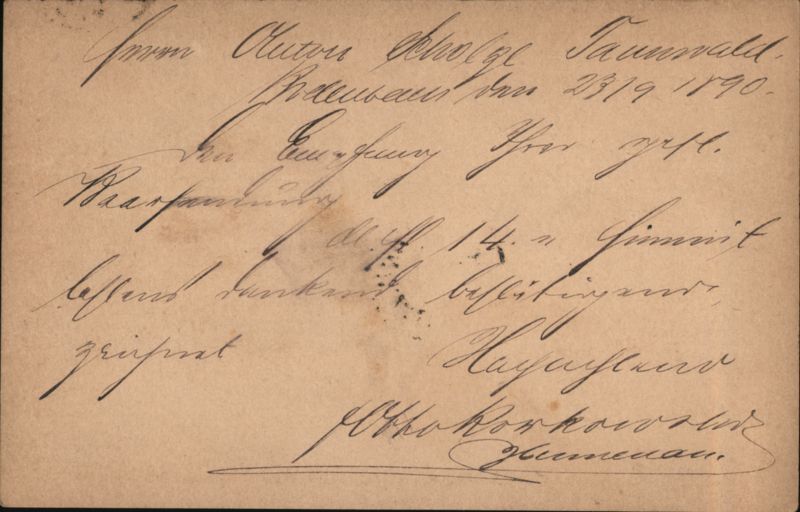 Herrn Anton Scholze Tannwald.
Bodenbach den 23/9 1890.
Den Empfang Ihrer gefl.
Baarsendung
de fl. 14. " hiermit
bestens dankend bestätigend,
zeichnet Hochachtend
Otto Korkowski